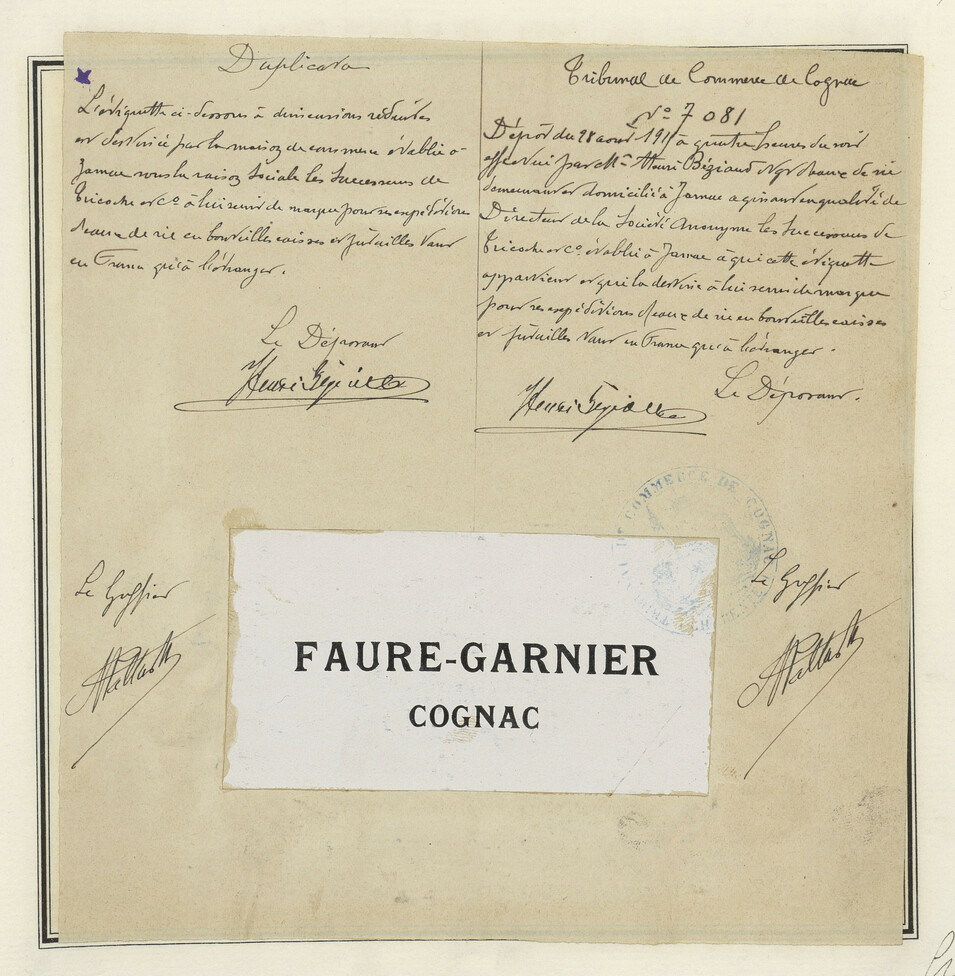 Duplicata
L'étiquette ci-dessous à dimensions réduites
est destinée par la maison de commerce établie à
Jarnac sous la raison sociale les Successeurs de
Tricoche et Cº à lui servir de marque pour ses expéditions
d'eaux de vie en bouteilles caisses et futailles tant
en France qu'à l'étranger.
Le Déposant
Henri
Tribunal de Commerce de Cognac
Nº 7081
Dépôt du 28 août à quatre heures du soir
effectué par Mr Henri Négt d'eaux de vie
demeurant et domicilié à Jarnac agissant en qualité de
Directeur de la Société Anonyme les Successeurs de
Tricoche et Cº établie à Jarnac à qui cette étiquette
appartient et qui la destine à lui servir de marque
pour ses expéditions d'eaux de vie en bouteilles caisses
et futailles tant en France qu'à l'étranger.
Le Déposant.
Henri
COMMERCE DE COGNAC
Le Greffier
Le Greffier
FAURE-GARNIER
COGNAC